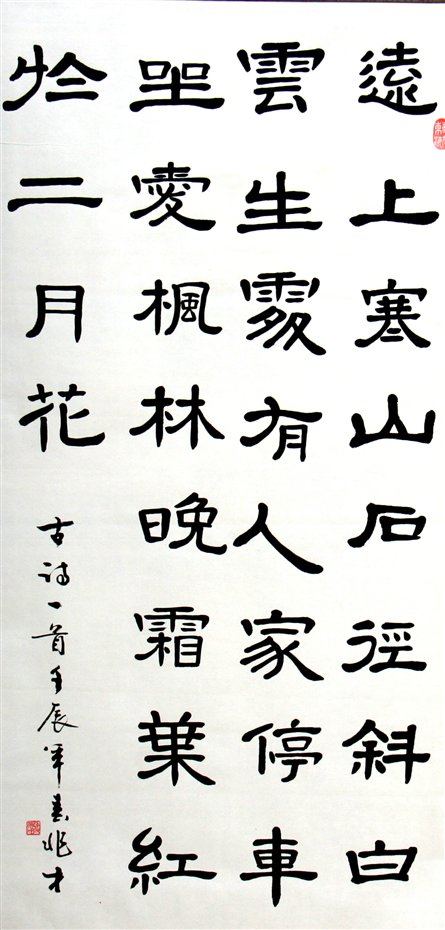 遠上寒山石徑斜白
雲生處有人家停車
坐愛楓林晚霜葉紅
於二月花
古诗一首壬辰年春兆才